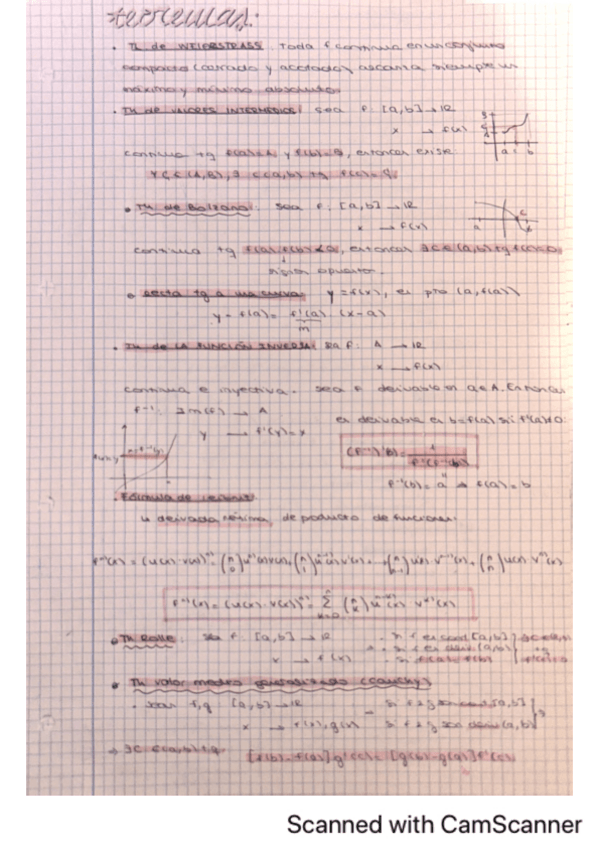 teoremas:
· Th de WEIERSTRASS: Toda f continua en un conjunto
compacto (cerrado y acotado) alcanza siempre un
máximo y mínimo absoluto.
· Th de VALORES INTERMEDIOS: sea f: [a,b] → IR
x → f(x)
continua tq f(a)=A y f(b)=B, entonces existe
∀ C ∈ (A,B), ∃ c∈(a,b) tq f(c)=C.
· Th de Bolzano: sea f: [a,b] → IR
x → f(x)
continua tq f(a)·f(b)<0, entonces ∃c∈(a,b) tq f(c)=0
signos opuestos.
· recta tg a una curva y=f(x), en pto (a,f(a))
y - f(a) = f'(a) · (x-a)
m
· Th de LA FUNCIÓN INVERSA: sea f: A → IR
x → f(x)
continua e inyectiva. Sea f derivable en a∈A. Entonces
f⁻¹: Im(f) → A
es derivable en b=f(a) si f'(a)≠0:
y → f⁻¹(y)=x
(f⁻¹)'(b) = 1 / f'(f⁻¹(b))
f⁻¹(b) = a ⇒ f(a) = b
· Fórmula de Leibniz
La derivada enésima de producto de funciones.
fⁿ(x) = (u(x)·v(x))ⁿ = (n 0) uⁿ(x)v(x) + (n 1) uⁿ⁻¹(x) v'(x) + ... + (n n-1) u'(x) vⁿ⁻¹(x) + (n n) u(x) vⁿ(x)
fⁿ(x) = (u(x)·v(x))ⁿ = Σ (n k) uⁿ⁻ᵏ(x) vᵏ(x)
· Th Rolle: sea f: [a,b] → IR - si f es cont [a,b]
x → f(x) - si f es deriv (a,b)
- si f(a)=f(b)
· Th valor medio generalizado (Cauchy)
· sean f,g [a,b] → IR - si f y g son cont [a,b]
x → f(x), g(x) - si f y g son deriv (a,b)
⇒ ∃c ∈(a,b) tq [f(b)-f(a)]g'(c) = [g(b)-g(a)]f'(c)
Scanned with CamScanner